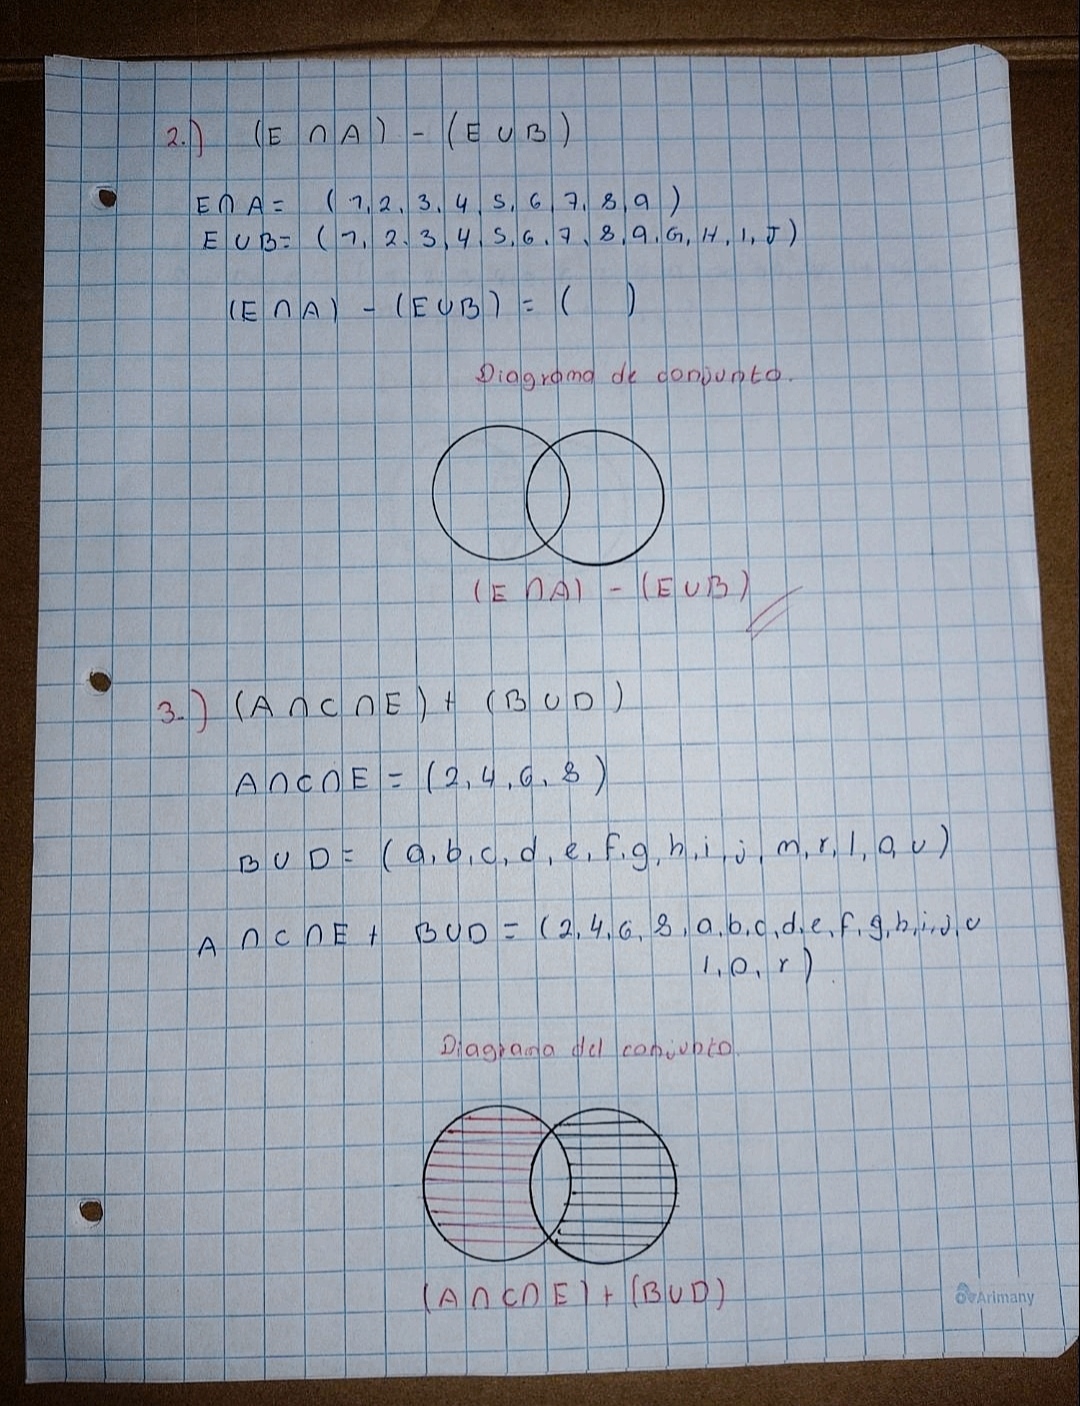 2.) (E ∩ A) - (E ∪ B)
E ∩ A = (1, 2, 3, 4, 5, 6, 7, 8, 9)
E ∪ B = (1, 2, 3, 4, 5, 6, 7, 8, 9, G, H, I, J)
(E ∩ A) - (E ∪ B) = ( )
Diagrama de conjunto.
(E ∩ A) - (E ∪ B)
3.) (A ∩ C ∩ E) + (B ∪ D)
A ∩ C ∩ E = (2, 4, 6, 8)
B ∪ D = (a, b, c, d, e, f, g, h, i, j, m, r, l, o, u)
A ∩ C ∩ E + B ∪ D = (2, 4, 6, 8, a, b, c, d, e, f, g, h, i, j, u
l, o, r).
Diagrama del conjunto.
(A ∩ C ∩ E) + (B ∪ D)
Arimany